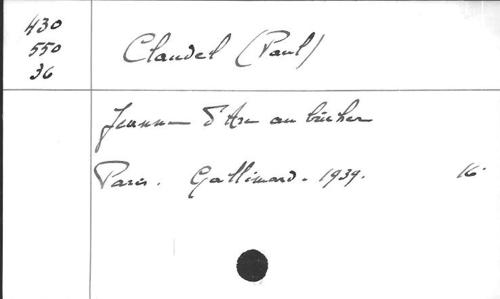 430
550
36
Claudel (Paul)
Jeanne d'Arc au bûcher
Paris. Gallimard. 1939. 16°